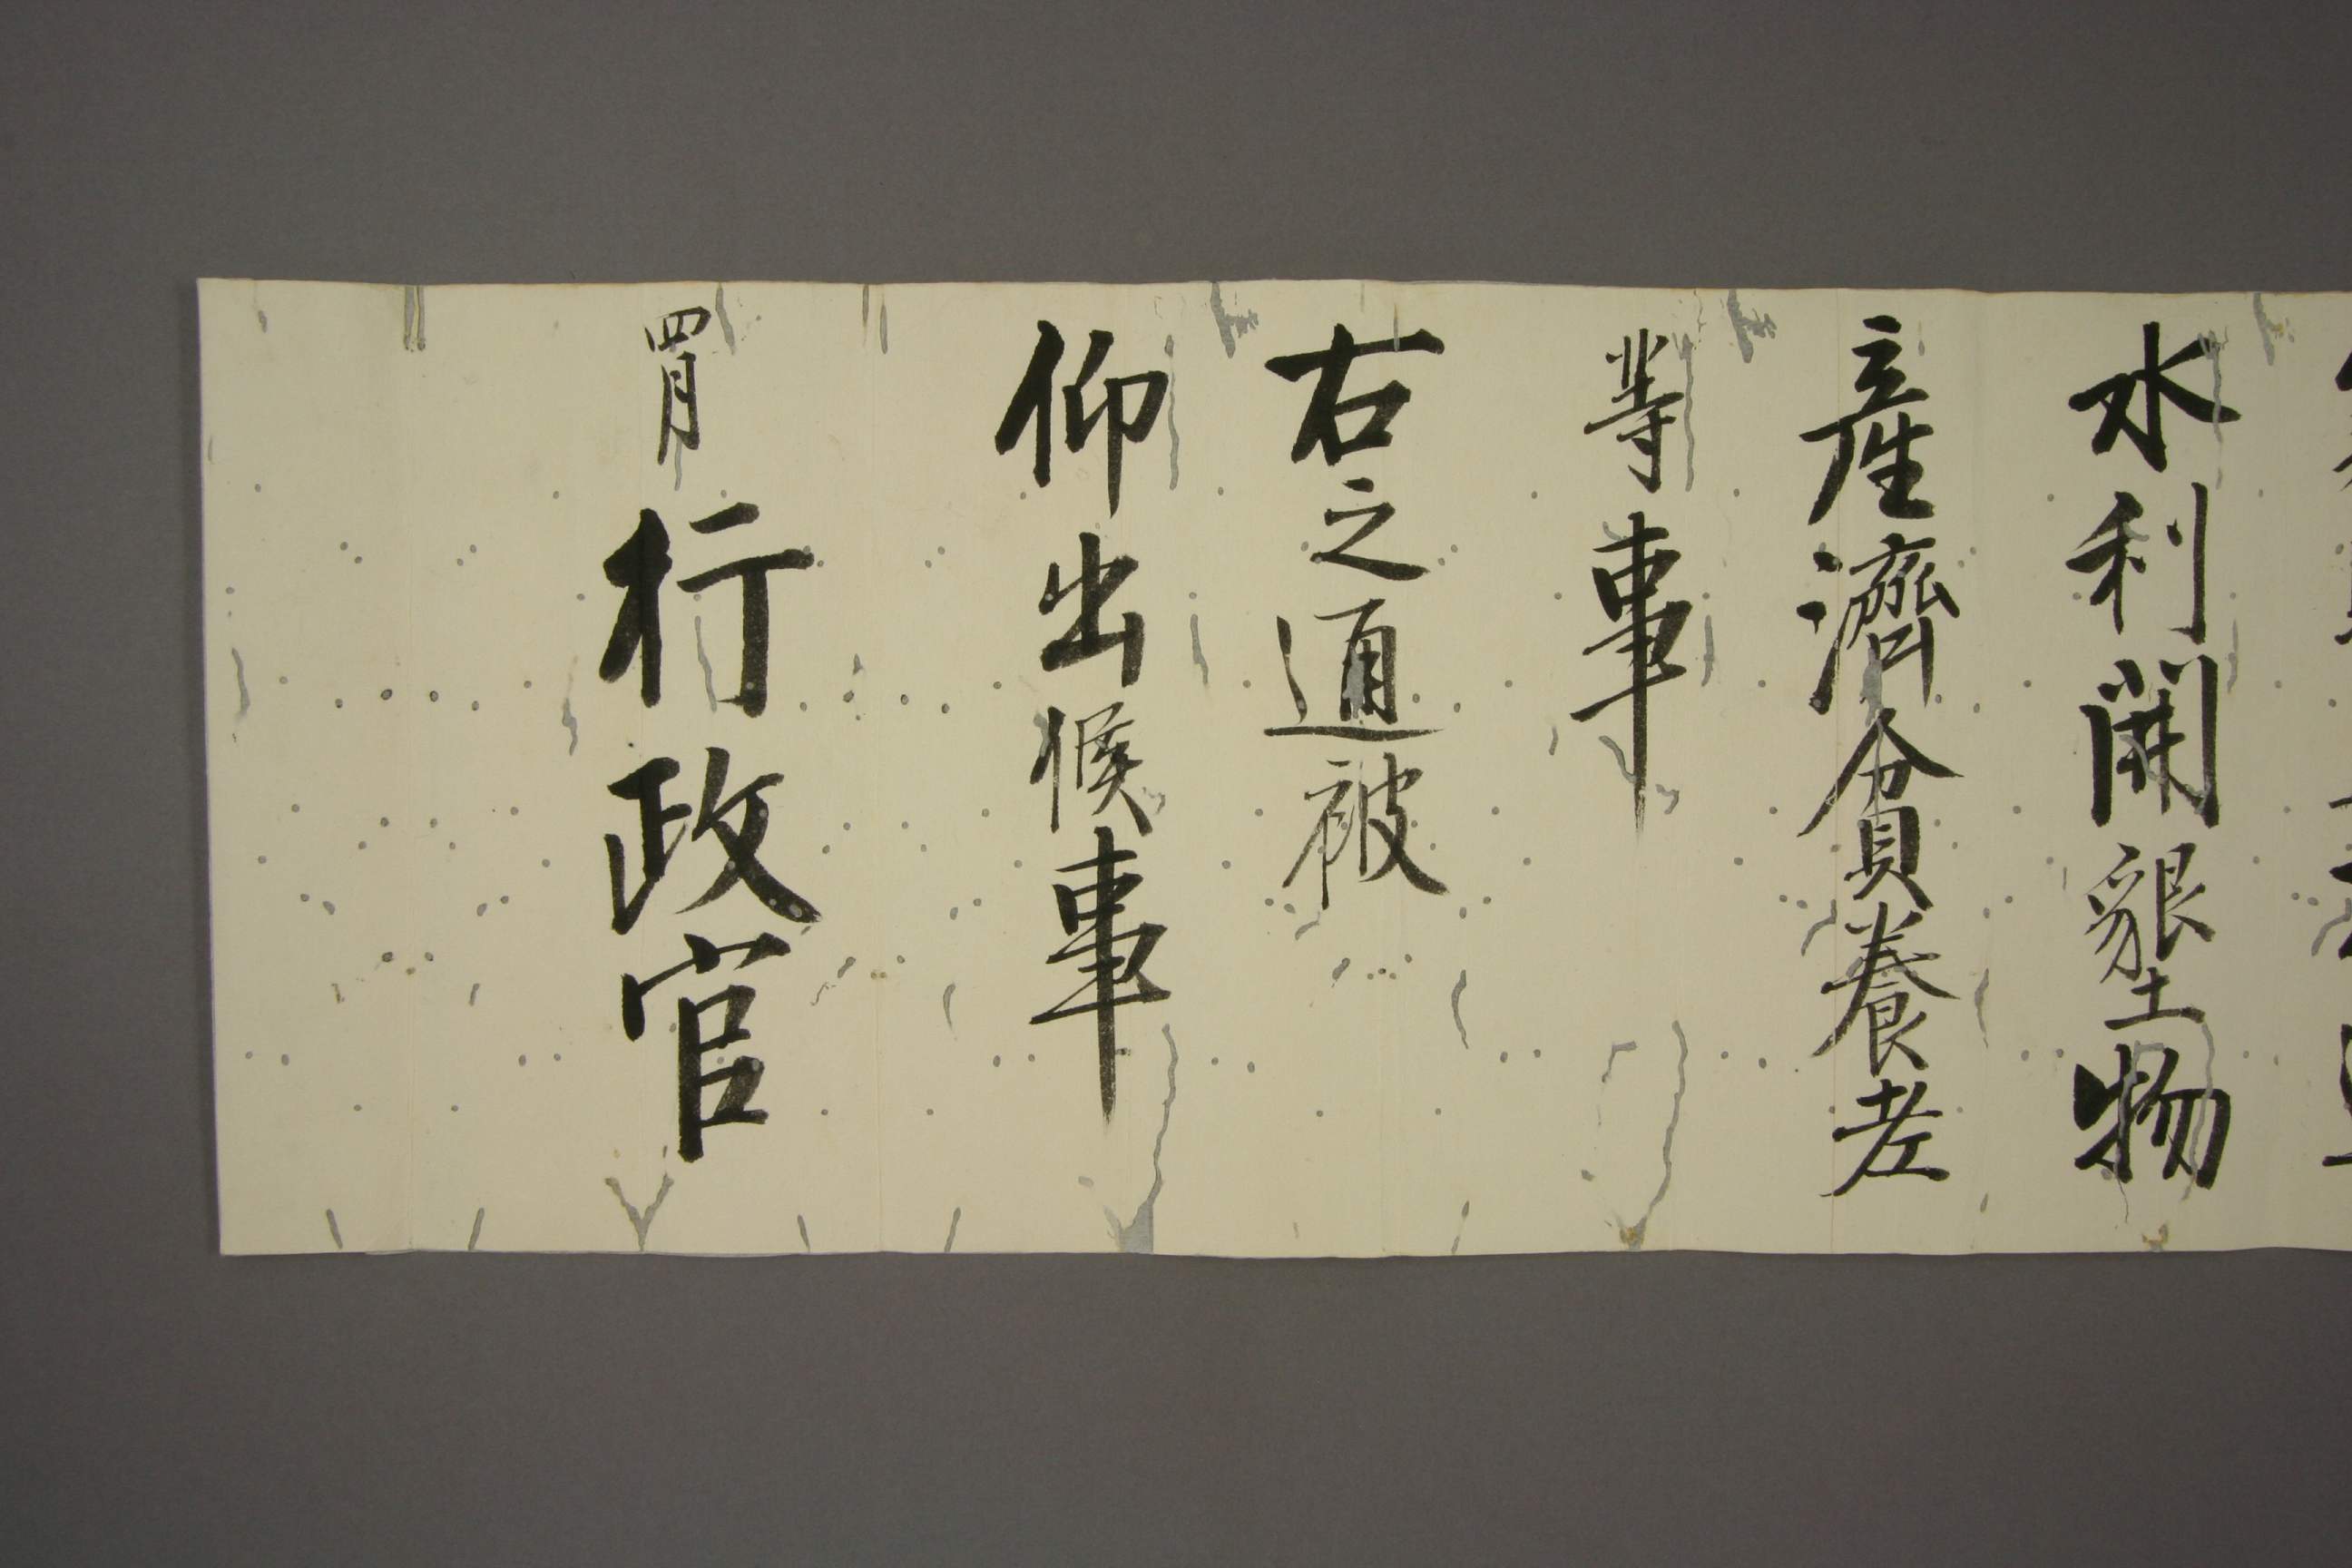 水利開墾物
産濟貧養老
等事
右之通被
仰出候事
四月
行政官